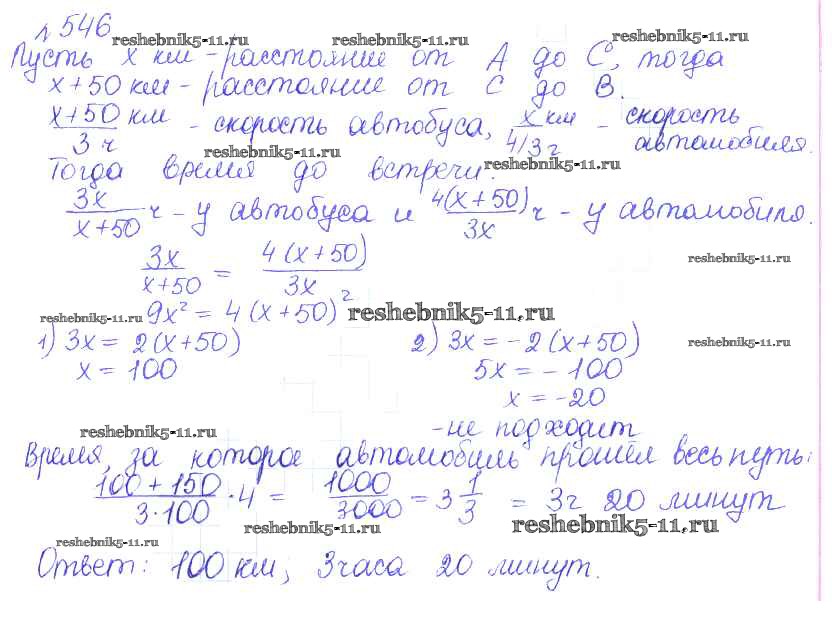 №546
reshebnik5-11.ru reshebnik5-11.ru reshebnik5-11.ru
Пусть x км - расстояние от A до C, тогда
x+50 км - расстояние от C до B.
(x+50 км)/(3 ч) - скорость автобуса, (x км)/(4/3 ч) - скорость автомобиля.
reshebnik5-11.ru reshebnik5-11.ru
Тогда время до встречи:
3x/(x+50) ч - у автобуса и 4(x+50)/3x ч - у автомобиля.
3x/(x+50) = 4(x+50)/3x
reshebnik5-11.ru
reshebnik5-11.ru 9x² = 4(x+50)² reshebnik5-11.ru
1) 3x = 2(x+50) 2) 3x = -2(x+50) reshebnik5-11.ru
x = 100 5x = -100
x = -20
reshebnik5-11.ru - не подходит
Время, за которое автомобиль прошёл весь путь:
(100+150)/(3·100) · 4 = 1000/3000 = 3 1/3 = 3ч 20 минут
reshebnik5-11.ru reshebnik5-11.ru
reshebnik5-11.ru
Ответ: 100 км; 3 часа 20 минут.